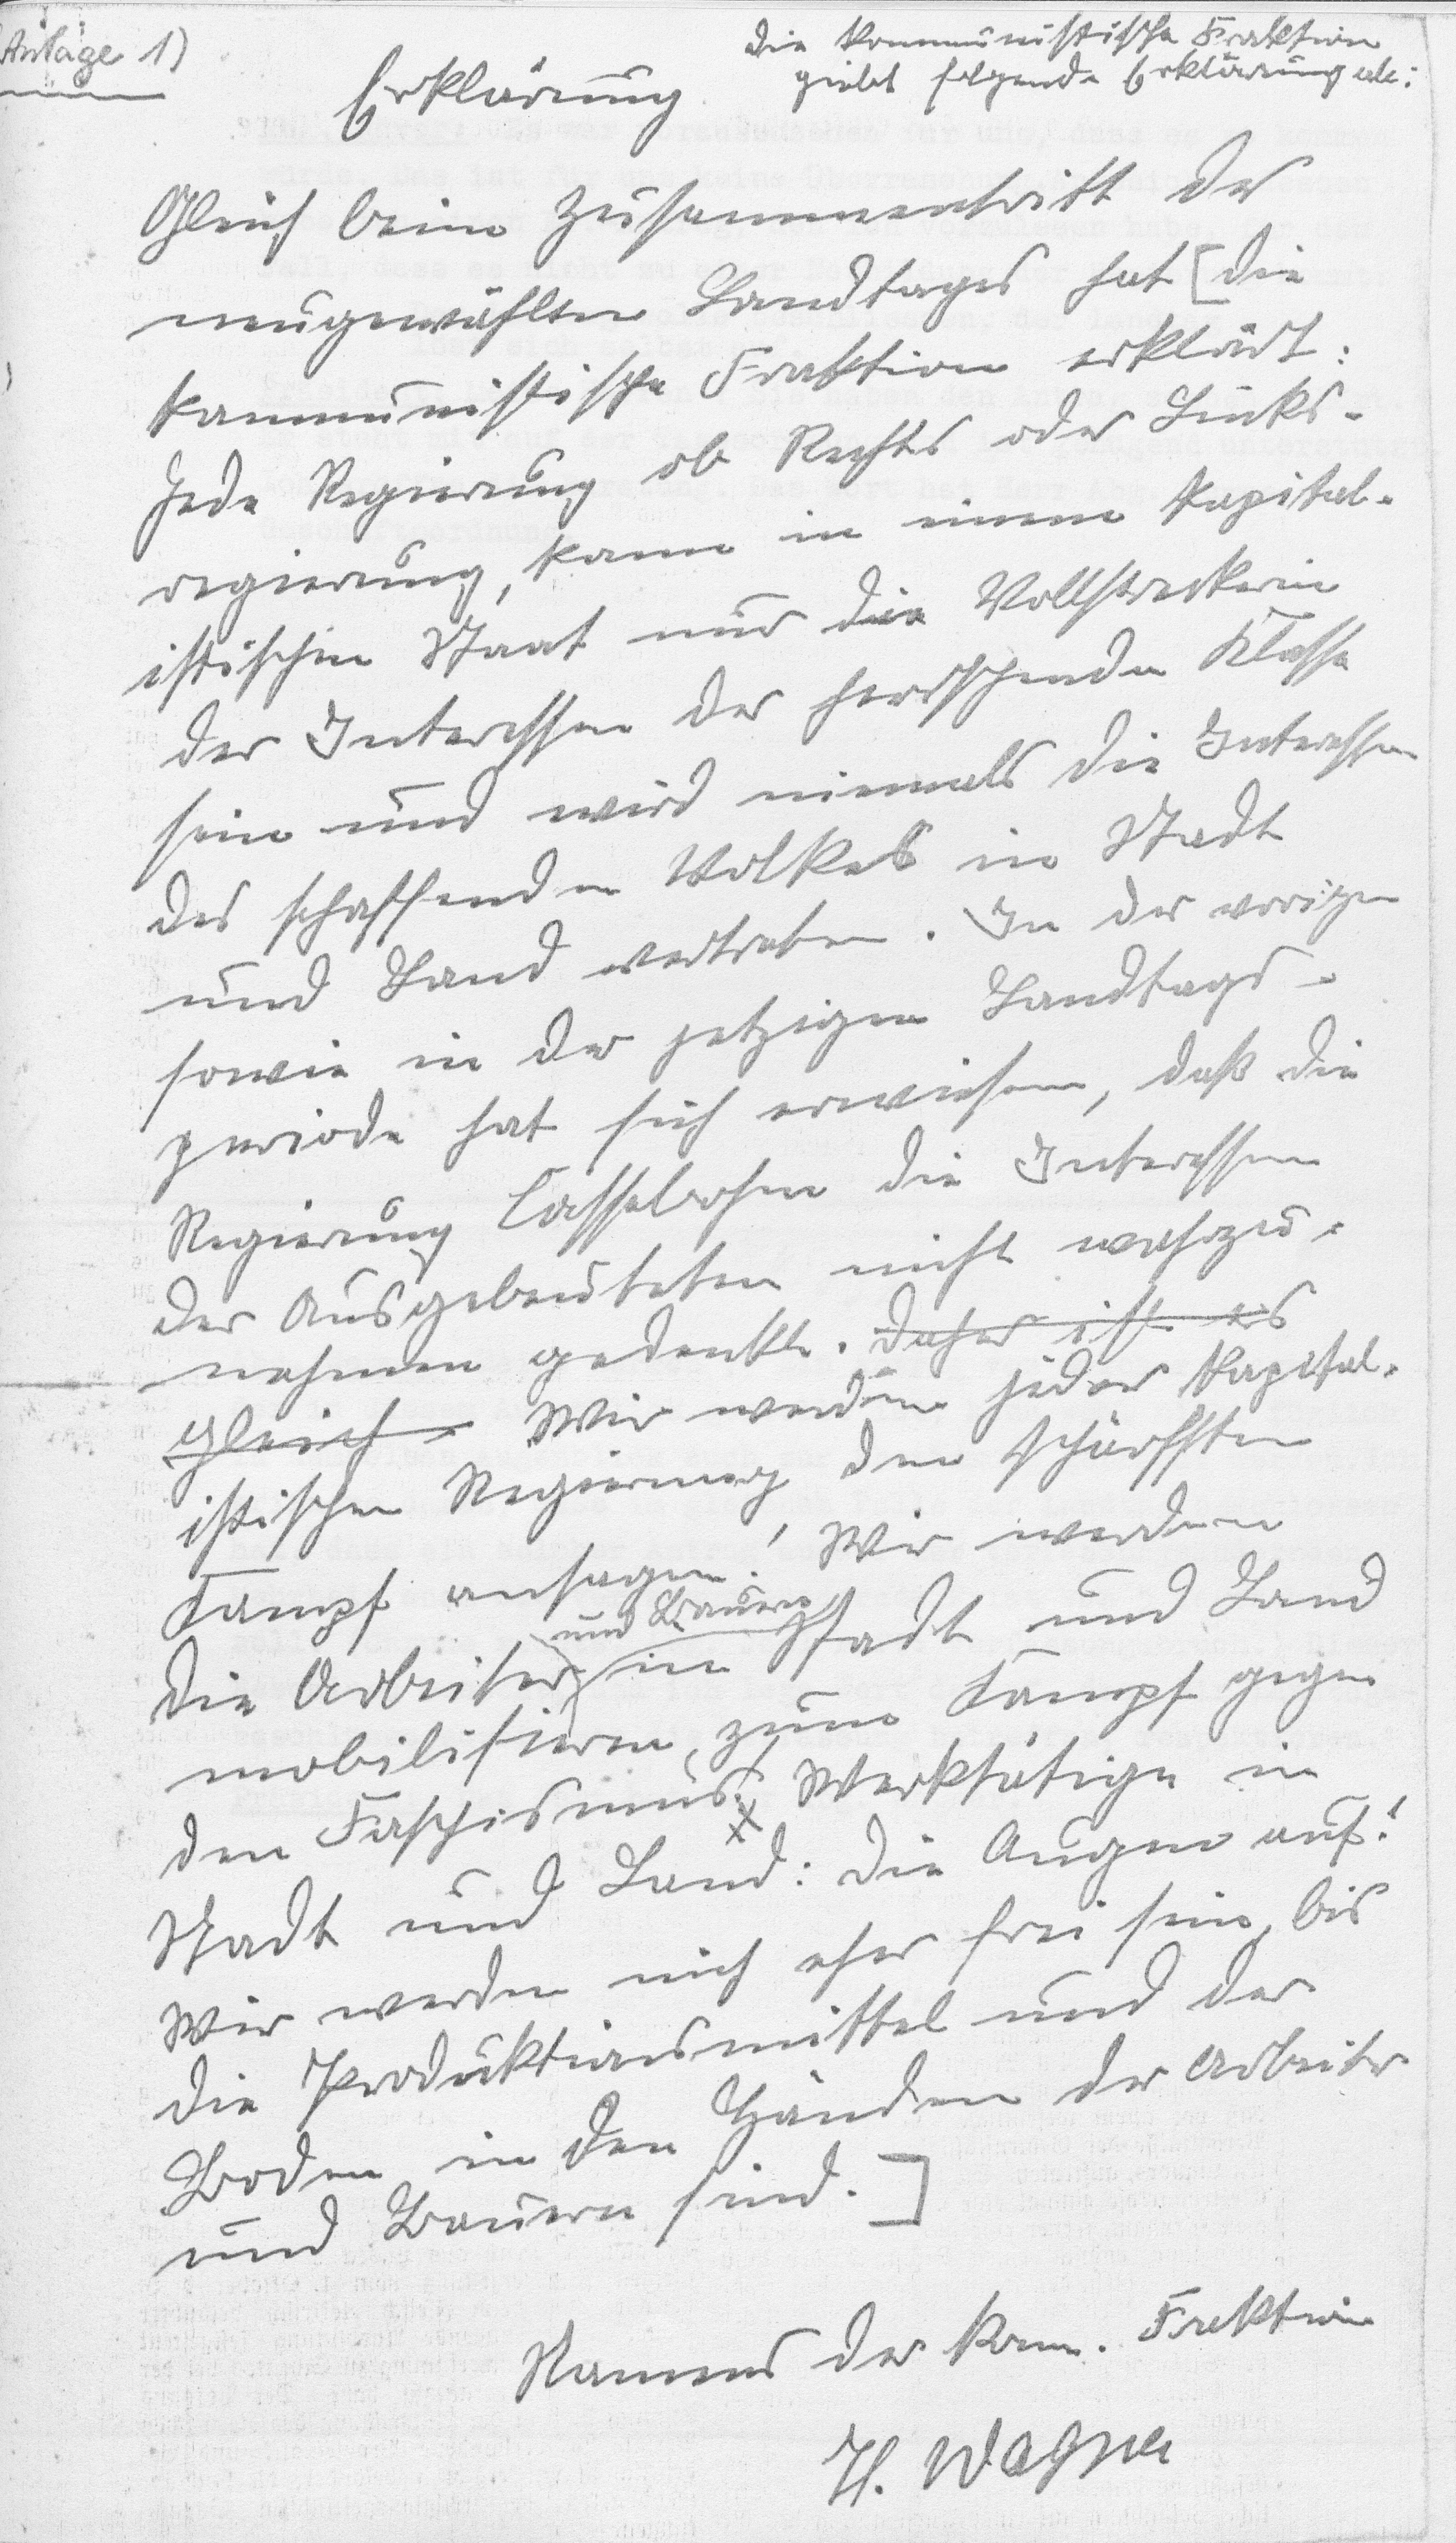 Anlage 1)
Die kommunistische Fraktion
giebt folgende Erklärung ab:
Erklärung
Gleich beim Zusammentritt des
neugewählten Landtages hat [die
kommunistische Fraktion erklärt:
Jede Regierung ob Rechts oder Links-
regierung, kann in einem kapital-
istischen Staat nur die Vollstreckerin
der Interessen der herschenden Klasse
sein und wird niemals die Interessen
des schaffenden Volkes in Stadt
und Land vertreten. In der vorigen
sowie in der jetzigen Landtags-
periode hat sich erwiesen, daß die
Regierung Cassebohm die Interessen
der Ausgebeuteten nicht wahrzu-
nehmen gedenkt. Daher ist es
gleich Wir werden jeder kapital-
istischen Regierung den schärfsten
Kampf ansagen! Wir werden
und Bauern
die Arbeiter in Stadt und Land
mobilisieren, zum Kampf gegen
den Faschismus! Werktätige in
Stadt und Land: Die Augen auf!
Wir werden nich eher frei sein, bis
die Produktionsmittel und der
Boden in den Händen der Arbeiter
und Bauern sind.]
Namens der kom. Fraktion
H. Wagner